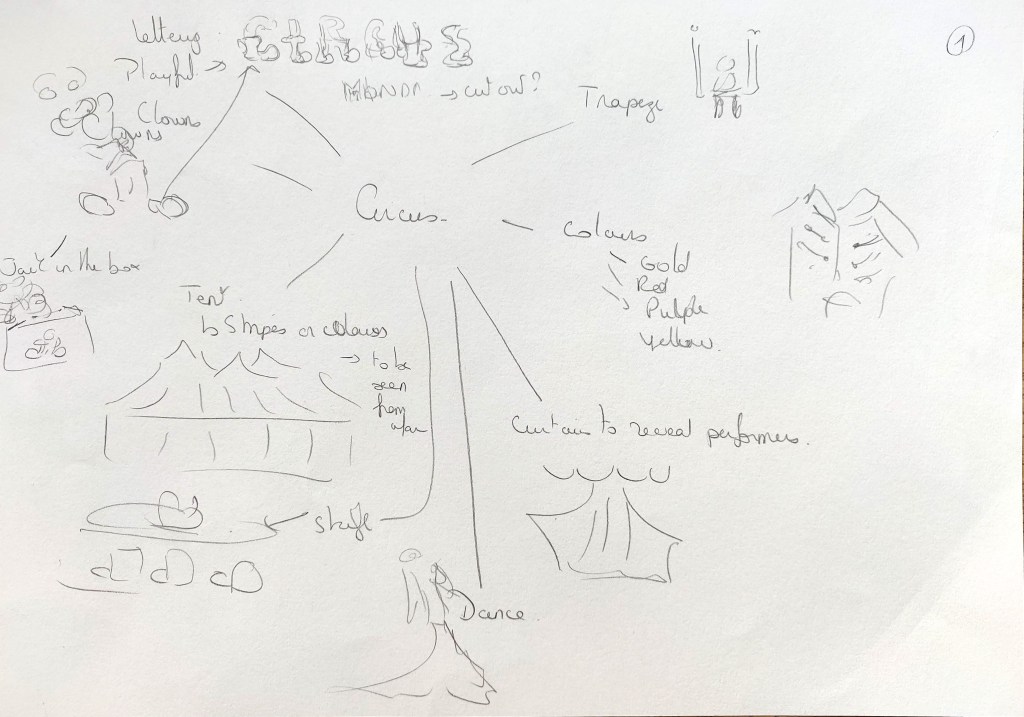 lettering
Playful →
→ cut out?
Trapeze
1
Clowns
Clowns
Circus.
Colours
Gold
Red
Purple
Yellow.
Jack in the box
Tent
↳ Stripes or colours
→ to be
seen
from
afar
Curtains to reveal performers.
Dance